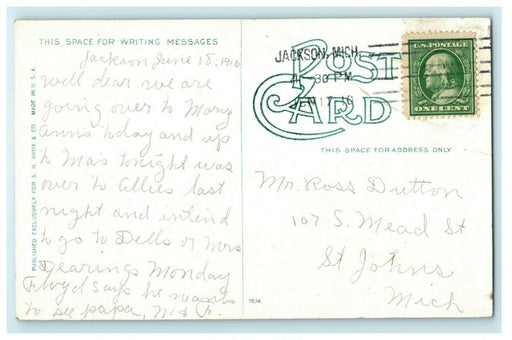 THIS SPACE FOR WRITING MESSAGES
Jackson June 18, 1910
well dear we are
going over to Mary
Anns today and up
to Mas tonight was
over to Allies last
night and intend
to go to Dells or Mrs
Dearings Monday
Floyd says he wants
to see papa, M & F.
PUBLISHED EXCLUSIVELY FOR S. H. KNOX & CO. MADE IN U.S.A.
JACKSON, MICH.
30 PM
POST
CARD
U.S. POSTAGE
ONE CENT
THIS SPACE FOR ADDRESS ONLY
Mr. Ross Dutton
107 S. Mead St
St Johns
Mich